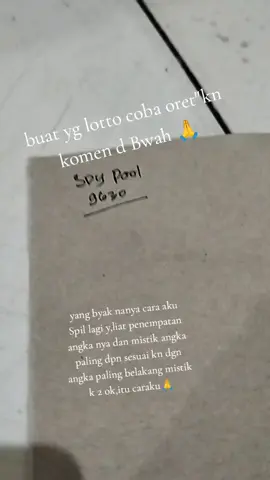 buat yg lotto coba oret"kn
komen d Bwah 🙏
SDY Pool
9630
yang byak nanya cara aku
Spil lagi y,liat penempatan
angka nya dan mistik angka
paling dpn sesuai kn dgn
angka paling belakang mistik
k 2 ok,itu caraku🙏